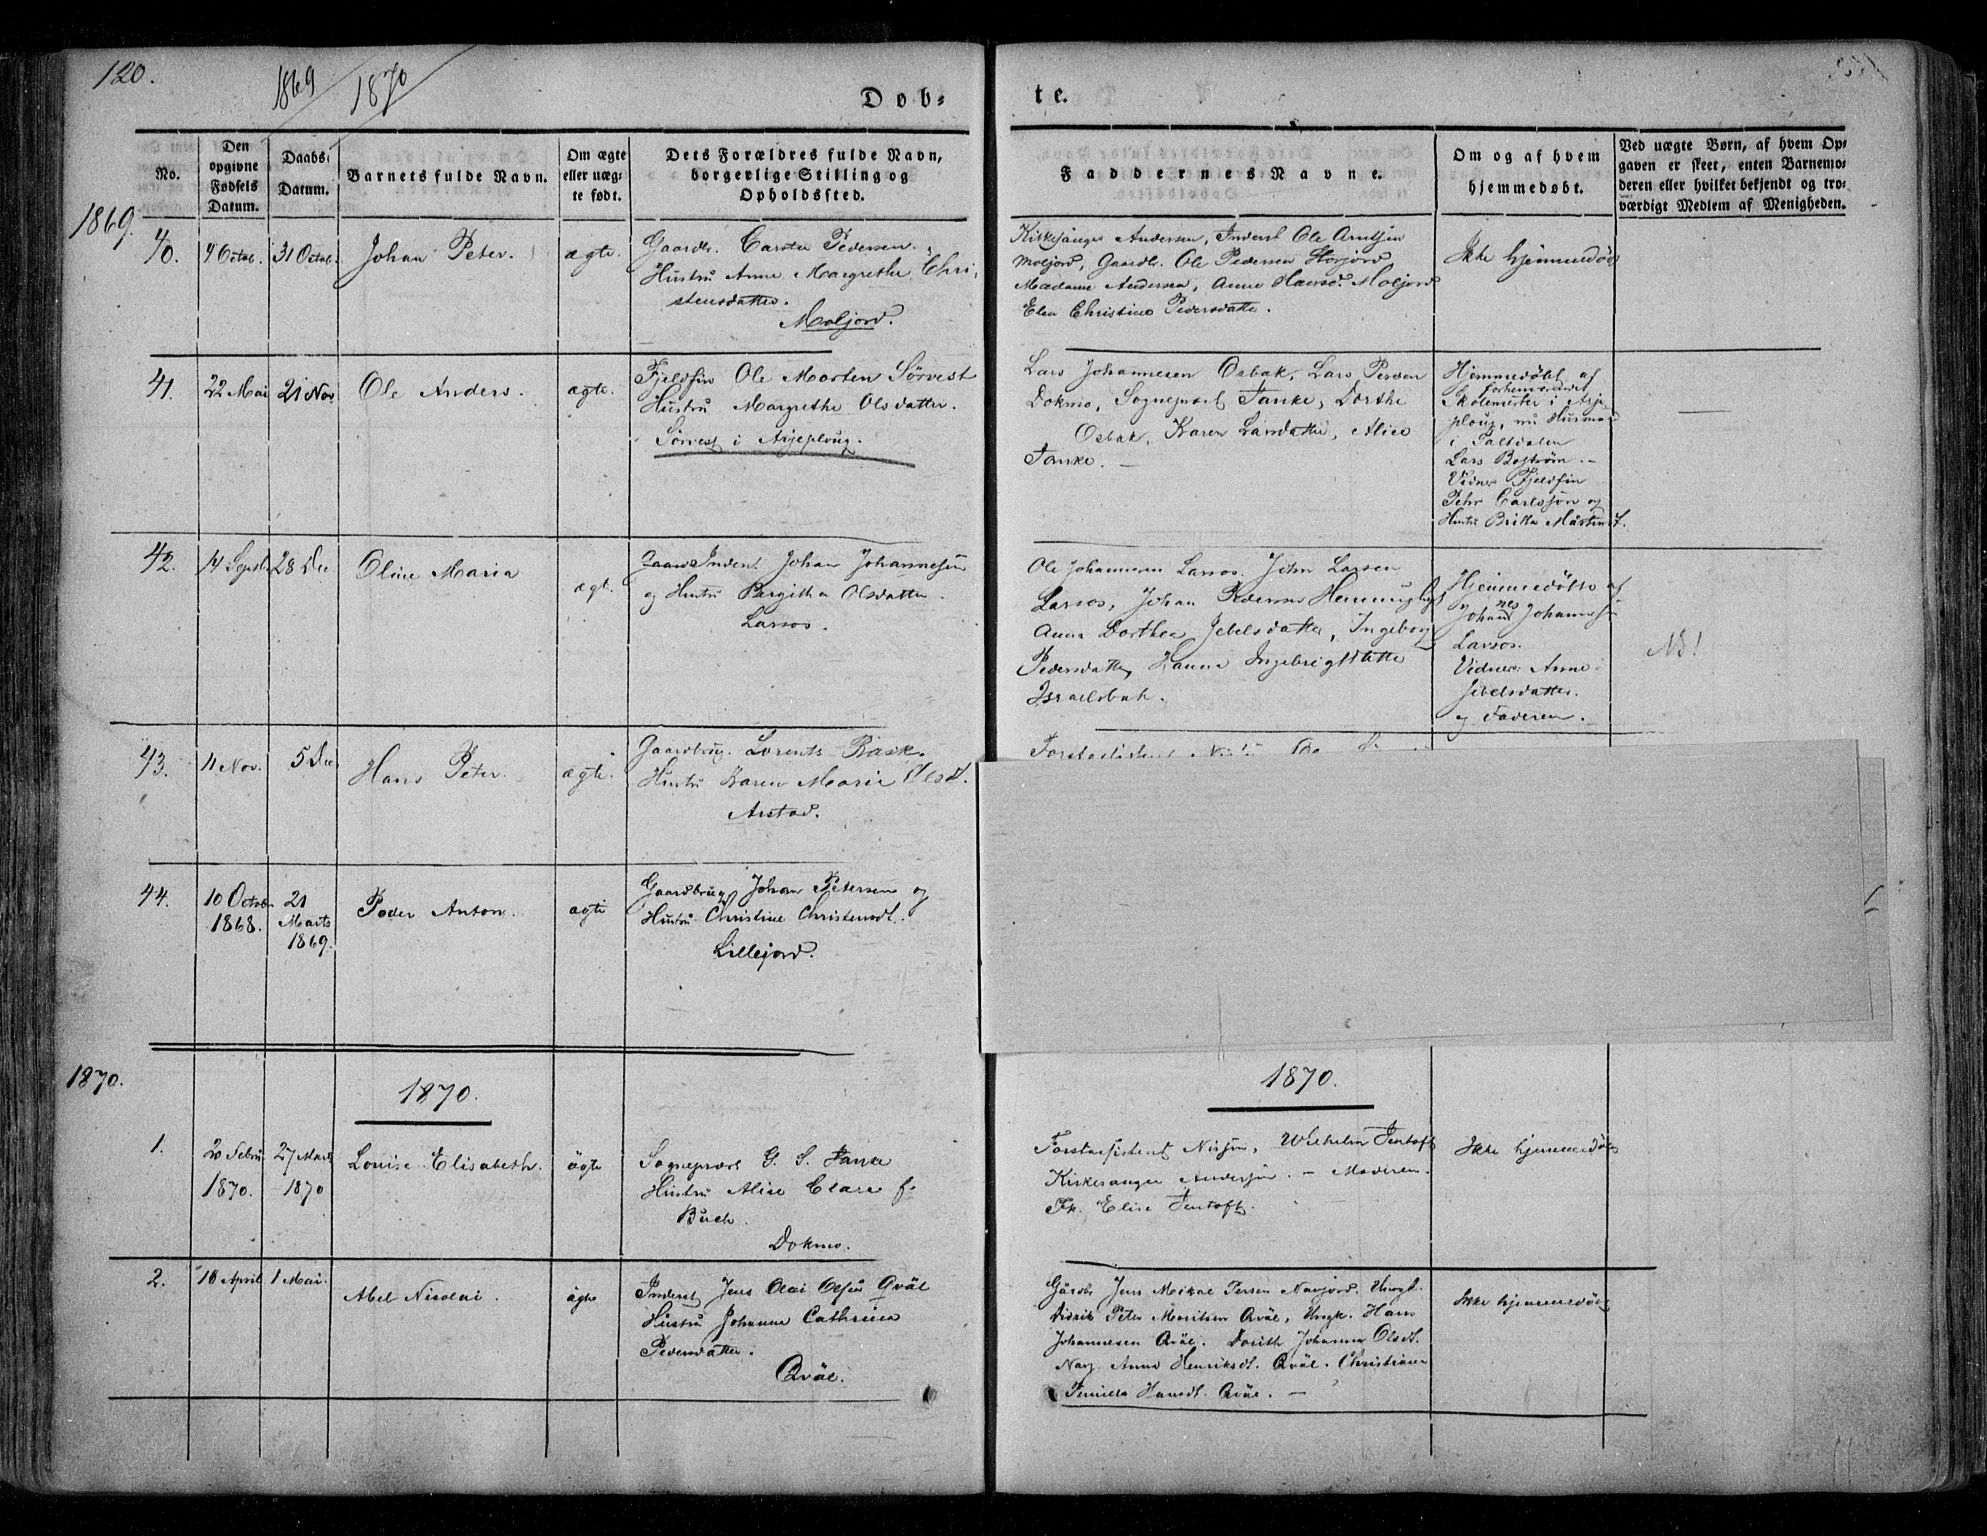 120.
1869
1870
Døb-
te.
No.
Den opgivne Fødsels Datum.
Daabs-Datum.
Barnets fulde Navn.
Om ægte eller uæg-te født.
Dets Forældres fulde Navn, borgerlige Stilling og Opholdssted.
Faddernes Navne.
Om og af hvem hjemmedøbt.
Ved uægte Børn, af hvem Op-gaven er skeet, enten Barnemo-deren eller hvilket bekjendt og tro-værdigt Medlem af Menigheden.
1869.
40.
4 Octob.
31 Octob.
Johan Peter.
ægte.
Gaardbr. Carsten Pedersen.
Hustru Anne Margrethe Chri-
stensdatter.
Moljord.
Kirkesanger Andersen, Inderst Ole Arntsen
Moljord, Gaardb. Ole Pedersen
Madame Andersen, Anne Hansd. Moljord
Elen Christine Pedersdatter.
Ikke hjemmedøbt
41.
22 Mai
21 Nov
Ole Anders.
ægte.
Fjeldfin Ole Morten Sørvest
Hustru Margrethe Olsdatter.
Sørvest i Arjeploug.
Lars Johannesen Osbak, Lars Persen
Dokmo, Sognepræst Tanke, Dorthe
Osbak, Karen Larsdatter, Alice
Tanke. —
Hjemmedøbt af
forhenværende
Skolemester i Arje-
ploug, nu Husmand
i
Lars Boström. —
Vidner Fjeldfin
Pehr Carlsson og
Hustru Britta Mårtensd.
42.
14 Septb
28 Dec
Oline Maria
ægt.
Gaard Inderst Johan Johannesen
og Hustru Birgitha Olsdatter.
Larsos.
Ole Johannesen Larsos. John Larsen
Larsos, Johan Pedersen
Anna Dorthea Jebelsdatter, Ingeborg
Pedersdatter, Hanna Ingebrigtsdatter
Israelsbak.
Hjemmedøbt af
Johannes Johannesen
Larsos.
Vidner: Anne
Jebelsdatter.
og Faderen.
NB!
43.
11 Nov.
5 Dec
Hans Peter.
ægte.
Gaardbrug. Lorents Rask.
Hustru Karen Marie Olsd.
Arstad.
44.
10 Octob
1868.
21
Marts
1869.
Peder Anton.
ægte
Gaardbrug Johan Petersen og
Hustru Christine Christensdt.
Lillejord.
1870.
1870.
1870.
1.
20 Febru
1870.
27 Marts
1870
Louise Elisabeth.
ägte
Sognepræst G. S. Tanke
Hustru Alise Clara f.
Buch.
Dokmo.
Forstassistent Nissen, Wilhelm Tentoft
Kirkesanger Andersen. — Moderen.
Fr. Elise Tentoft.
Ikke hjemmedøbt
2.
18 April
1 Mai.
Abel Nicolai.
ägte
Inderst Jens Olai Olsen Qväl
Hustru Johanna Cathrina
Pedersdatter.
Qväl.
Gårdb. Jens Mikal Persen Navjord. Ungk.
Didrik Peter Moritsen Qväl, Ungk. Hans
Johannesen Qväl. Dorith Johanna Olsdt.
Navj. Anna Henriksdt. Qväl. Christiana
Pernilla Hansdt. Qväl. —
Ikke hjemmedøbt